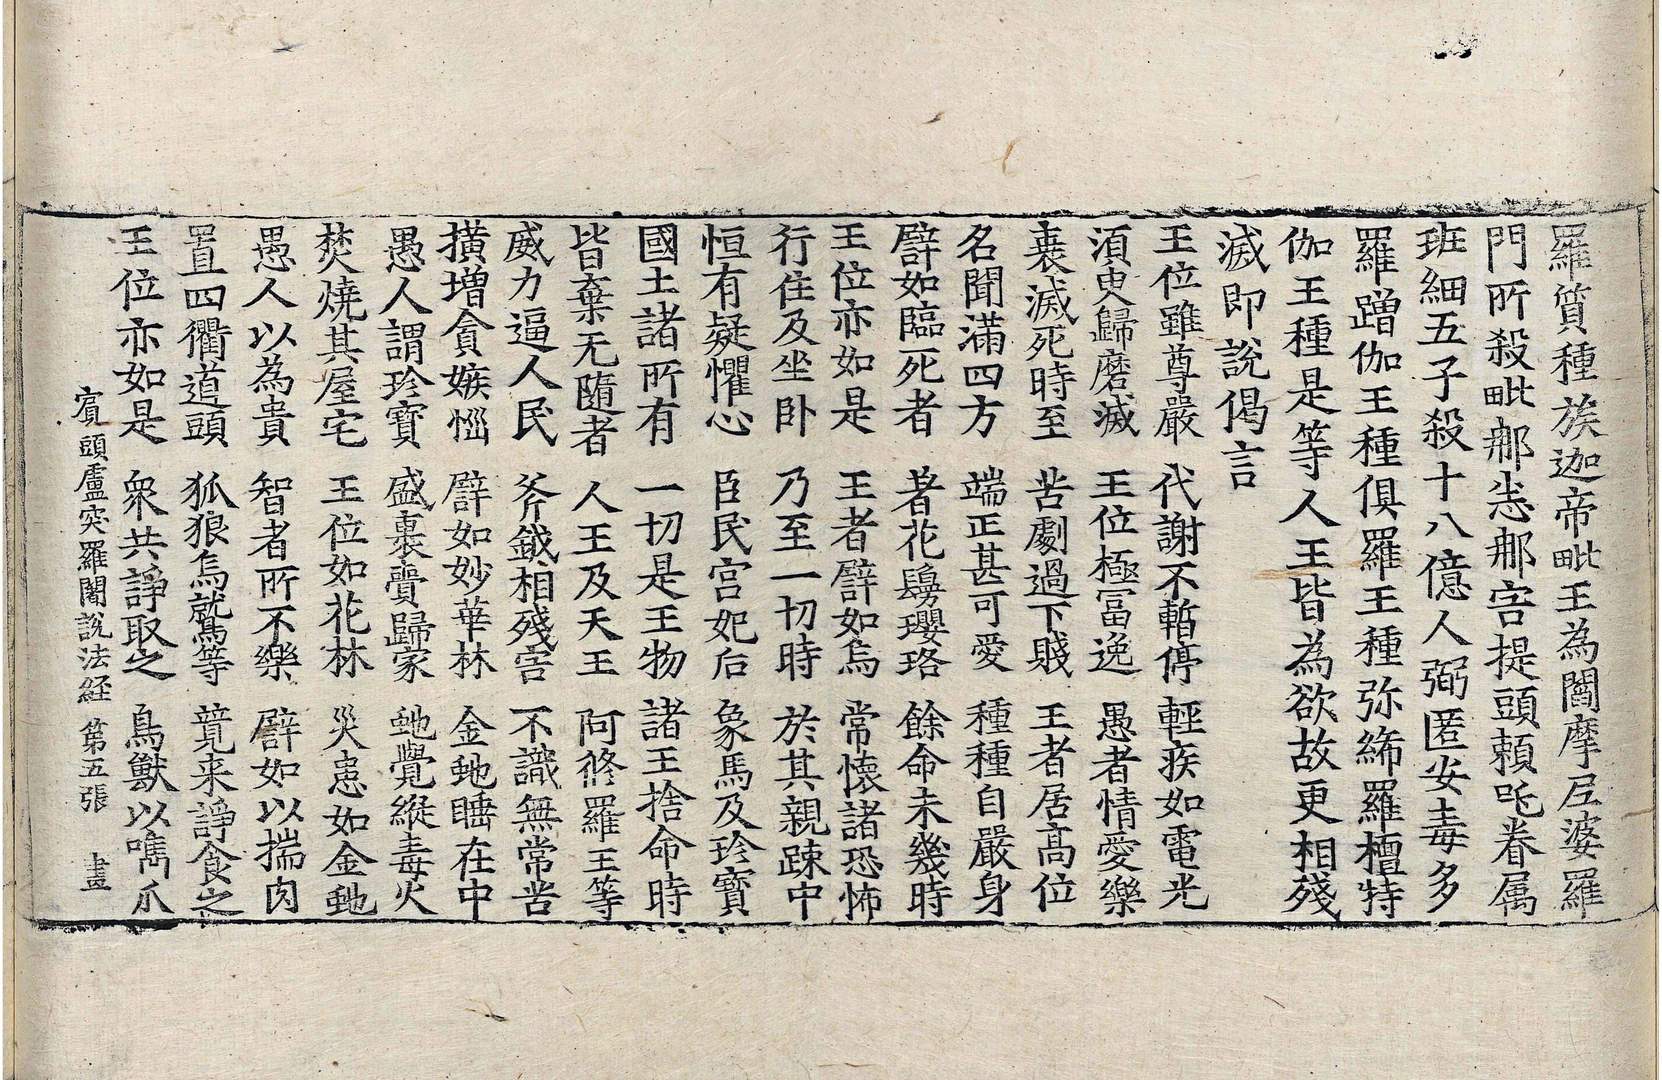 羅質種族迦帝毗王為閻摩𡰱婆羅
門所殺毗䣯恙䣯害提頭頼吒眷属
班細五子殺十八億人弼匿安毒多
羅蹭伽王種俱羅王種弥絺羅檀特
伽王種是等人王皆為欲故更相殘
滅即說偈言
王位雖尊嚴 代謝不暫停 輕疾如電光
湏臾歸磨滅 王位極冨逸 愚者情愛樂
衰滅死時至 苦劇過下賤 王者居髙位
名聞滿四方 端正甚可愛 種種自嚴身
譬如臨死者 著花鬘瓔珞 餘命未幾時
王位亦如是 王者譬如烏 常懷諸恐怖
行住及坐卧 乃至一切時 於其親踈中
恒有疑懼心 臣民宮妃后 象馬及珍寳
國土諸所有 一切是王物 諸王捨命時
皆棄无隨者 人王及天王 阿脩羅王等
威力逼人民 斧鉞相殘害 不識無常苦
撗増貪嫉惱 譬如妙華林 金虵睡在中
愚人謂珍寳 盛裹賷歸家 虵覺縱毒火
焚燒其屋宅 王位如花林 災患如金虵
愚人以為貴 智者所不樂 譬如以揣肉
置四衢道頭 狐狼烏鷲等 競来諍食之
王位亦如是 衆共諍取之 鳥獸以嘴爪
賔頭盧突羅闍說法経 第五張 畫